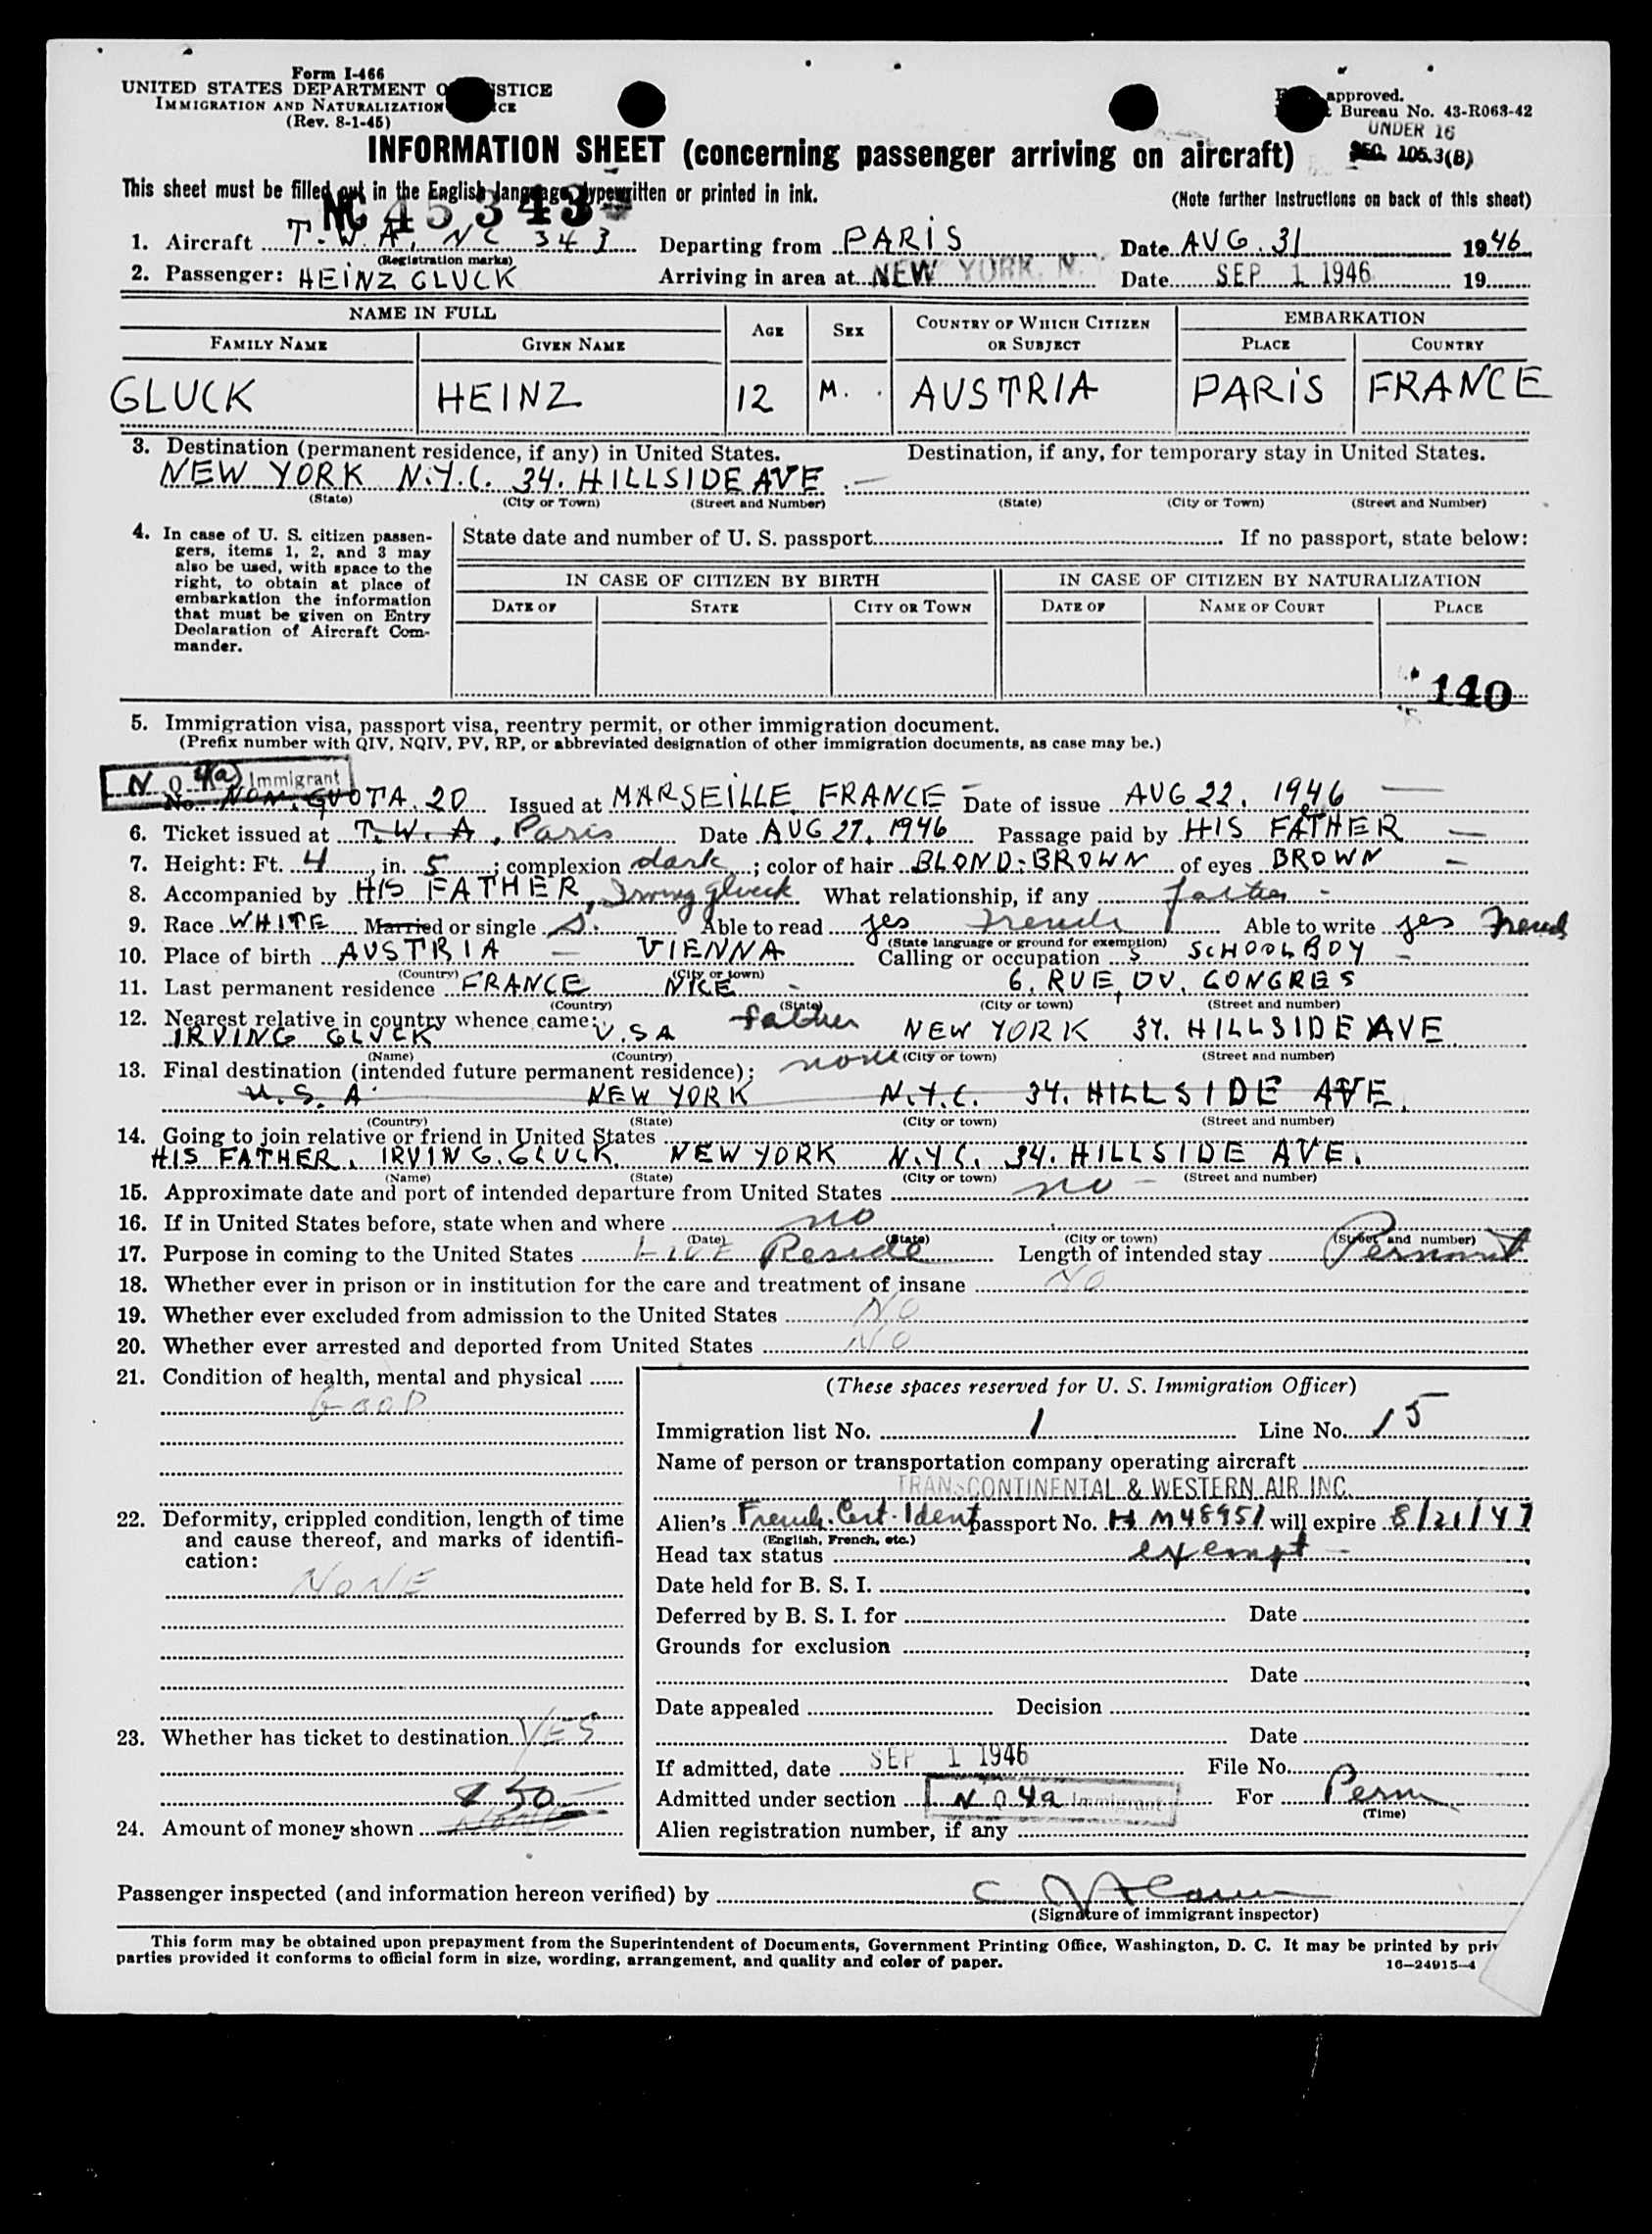 Form I-466
UNITED STATES DEPARTMENT O STICE
IMMIGRATION AND NATURALIZATION ICE
(Rev. 8-1-45)
approved.
Bureau No. 43-R063-42
UNDER 16
SEC. 105.3(B)
INFORMATION SHEET (concerning passenger arriving on aircraft)
This sheet must be filled out in the English language, typewritten or printed in ink. (Note further instructions on back of this sheet)
NC 45343
1. Aircraft T.W.A, NC 343 Departing from PARIS Date AUG. 31 1946
(Registration marks)
2. Passenger: HEINZ GLUCK Arriving in area at NEW YORK, N. Date SEP 1 1946 19
NAME IN FULL AGE SEX COUNTRY OF WHICH CITIZEN OR SUBJECT EMBARKATION
FAMILY NAME GIVEN NAME PLACE COUNTRY
GLUCK HEINZ 12 M. AUSTRIA PARIS FRANCE
3. Destination (permanent residence, if any) in United States. Destination, if any, for temporary stay in United States.
NEW YORK N.Y.C. 34. HILLSIDE AVE —
(State) (City or Town) (Street and Number) (State) (City or Town) (Street and Number)
4. In case of U. S. citizen passen-
gers, items 1, 2, and 3 may
also be used, with space to the
right, to obtain at place of
embarkation the information
that must be given on Entry
Declaration of Aircraft Com-
mander.
State date and number of U. S. passport If no passport, state below:
IN CASE OF CITIZEN BY BIRTH IN CASE OF CITIZEN BY NATURALIZATION
DATE OF STATE CITY OR TOWN DATE OF NAME OF COURT PLACE
140
5. Immigration visa, passport visa, reentry permit, or other immigration document.
(Prefix number with QIV, NQIV, PV, RP, or abbreviated designation of other immigration documents, as case may be.)
N Q 4(a) Immigrant
No. NON. QUOTA. 20 Issued at MARSEILLE FRANCE — Date of issue AUG 22. 1946 —
6. Ticket issued at T.W.A, Paris Date AUG 27. 1946 Passage paid by HIS FATHER —
7. Height: Ft. 4, in. 5; complexion dark; color of hair BLOND: BROWN of eyes BROWN —
8. Accompanied by HIS FATHER, Irving Gluck What relationship, if any father -
9. Race WHITE Married or single S. Able to read yes French Able to write yes French
(State language or ground for exemption)
10. Place of birth AUSTRIA — VIENNA Calling or occupation S SCHOOLBOY -
(Country) (City or town)
11. Last permanent residence FRANCE NICE - 6, RUE, DU, CONGRES
(Country) (State) (City or town) (Street and number)
12. Nearest relative in country whence came: father
IRVING GLUCK U.SA NEW YORK 34. HILLSIDE AVE
(Name) (Country) (City or town) (Street and number)
13. Final destination (intended future permanent residence): none
U.S.A NEW YORK N.Y.C. 34. HILLSIDE AVE.
(Country) (State) (City or town) (Street and number)
14. Going to join relative or friend in United States
HIS FATHER. IRVING. GLUCK. NEW YORK N.Y.C. 34. HILLSIDE AVE.
(Name) (State) (City or town) (Street and number)
15. Approximate date and port of intended departure from United States no -
16. If in United States before, state when and where no
(Date) (State) (City or town) (Street and number)
17. Purpose in coming to the United States LIVE Reside Length of intended stay Permanent
18. Whether ever in prison or in institution for the care and treatment of insane NO
19. Whether ever excluded from admission to the United States NO
20. Whether ever arrested and deported from United States NO
21. Condition of health, mental and physical
GOOD
22. Deformity, crippled condition, length of time
and cause thereof, and marks of identifi-
cation:
NONE
23. Whether has ticket to destination YES
$50-
24. Amount of money shown
(These spaces reserved for U. S. Immigration Officer)
Immigration list No. 1 Line No. 15
Name of person or transportation company operating aircraft
TRANSCONTINENTAL & WESTERN AIR INC.
Alien's French. Cert. Ident passport No. HM48951 will expire 8/21/47
(English, French, etc.)
Head tax status exempt -
Date held for B. S. I.
Deferred by B. S. I. for Date
Grounds for exclusion
Date
Date appealed Decision
Date
If admitted, date SEP 1 1946 File No.
Admitted under section N Q 4a Immigrant For Perm
(Time)
Alien registration number, if any
Passenger inspected (and information hereon verified) by
(Signature of immigrant inspector)
This form may be obtained upon prepayment from the Superintendent of Documents, Government Printing Office, Washington, D. C. It may be printed by priv
parties provided it conforms to official form in size, wording, arrangement, and quality and color of paper. 16—24915-4